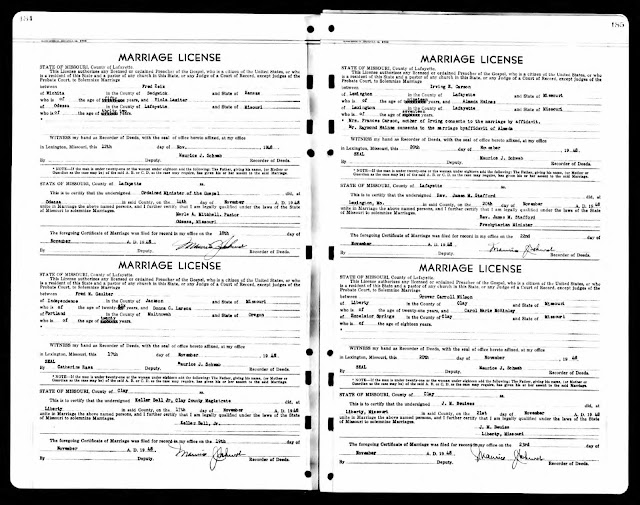 184
MARRIAGE LICENSE
STATE OF MISSOURI, County of Lafayette.
This License authorizes any licensed or ordained Preacher of the Gospel, who is a citizen of the United States, or who
is a resident of this State and a pastor of any church in this State, or any Judge of a Court of Record, except judges of the
Probate Court, to Solemnize Marriage
between Fred
of Wichita in the County of Sedgwick and State of Kansas
who is of the age of years, and Viola Lassiter
of Odessa in the County of Lafayette and State of Missouri
who is of the age of years.
WITNESS my hand as Recorder of Deeds, with the seal of office hereto affixed, at my office
in Lexington, Missouri, this 12th day of Nov. 1948
Maurice J. Schwob
By Deputy. Recorder of Deeds.
STATE OF MISSOURI, County of Lafayette ss.
This is to certify that the undersigned Ordained Minister of the Gospel did, at
Odessa in said County, on the day of November A. D. 1948
unite in Marriage the above named persons, and I further certify that I am legally qualified under the laws of the State
of Missouri to solemnize Marriages.
Merle A. Mitchell, Pastor
Odessa, Missouri
The foregoing Certificate of Marriage was filed for record in my office on the 18th day of
November A. D. 1948 Maurice J Schwob
By Deputy. Recorder of Deeds.
MARRIAGE LICENSE
STATE OF MISSOURI, County of Lafayette.
This License authorizes any licensed or ordained Preacher of the Gospel, who is a citizen of the United States, or who
is a resident of this State and a pastor of any church in this State, or any Judge of a Court of Record, except judges of the
Probate Court, to Solemnize Marriage
between Fred M.
of Independence in the County of Jackson and State of Missouri
who is of the age of years, and Donna C. Larson
of Portland in the County of Multnomah and State of Oregon
who is of the age of years.
WITNESS my hand as Recorder of Deeds, with the seal of office hereto affixed, at my office
in Lexington, Missouri, this 17th day of November 1948
SEAL Maurice J. Schwob
By Catherine Deputy. Recorder of Deeds.
STATE OF MISSOURI, County of Clay ss.
This is to certify that the undersigned Keller Bell Jr, Clay County Magistrate did, at
Liberty in said County, on the 17th day of November A. D. 1948
unite in Marriage the above named persons, and I further certify that I am legally qualified under the laws of the State
of Missouri to solemnize Marriages.
Keller Bell, Jr.
The foregoing Certificate of Marriage was filed for record in my office on the 19th day of
November A. D. 1948 Maurice J Schwob
By Deputy. Recorder of Deeds.
185
MARRIAGE LICENSE
STATE OF MISSOURI, County of Lafayette.
This License authorizes any licensed or ordained Preacher of the Gospel, who is a citizen of the United States, or who
is a resident of this State and a pastor of any church in this State, or any Judge of a Court of Record, except judges of the
Probate Court, to Solemnize Marriage
between Irving E. Carson
of Lexington in the County of Lafayette and State of Missouri
who is of the age of years, and Almeda Haines
of Lexington in the County of Lafayette and State of Missouri
who is of the age of years.
Mrs. Frances Carson, mother of Irving consents to the marriage by affidavit.
Mr. Raymond Haines consents to the marriage by affidavit of Almeda
WITNESS my hand as Recorder of Deeds, with the seal of office hereto affixed, at my office
in Lexington, Missouri, this 20th day of November 1948
SEAL Maurice J. Schwob
By Deputy. Recorder of Deeds.
STATE OF MISSOURI, County of Lafayette ss.
This is to certify that the undersigned Rev. James M. Stafford did, at
Lexington, Mo. in said County, on the 20th day of November A. D. 1948
unite in Marriage the above named persons, and I further certify that I am legally qualified under the laws of the State
of Missouri to solemnize Marriages.
Rev. James M. Stafford
Presbyterian Minister
The foregoing Certificate of Marriage was filed for record in my office on the 22nd day of
November A. D. 1948 Maurice J Schwob
By Deputy. Recorder of Deeds.
MARRIAGE LICENSE
STATE OF MISSOURI, County of Lafayette.
This License authorizes any licensed or ordained Preacher of the Gospel, who is a citizen of the United States, or who
is a resident of this State and a pastor of any church in this State, or any Judge of a Court of Record, except judges of the
Probate Court, to Solemnize Marriage
between Grover Carroll Wilson
of Liberty in the County of Clay and State of Missouri
who is of the age of years, and Carol Marie McGinley
of Excelsior Springs in the County of Clay and State of Missouri
who is of the age of eighteen years.
WITNESS my hand as Recorder of Deeds, with the seal of office hereto affixed, at my office
in Lexington, Missouri, this 20th day of November 1948
SEAL Maurice J. Schwob
By Deputy. Recorder of Deeds.
STATE OF MISSOURI, County of Clay ss.
This is to certify that the undersigned J. M. did, at
Liberty, Missouri in said County, on the 21st day of November A. D. 1948
unite in Marriage the above named persons, and I further certify that I am legally qualified under the laws of the State
of Missouri to solemnize Marriages.
J. M.
Liberty, Missouri
The foregoing Certificate of Marriage was filed for record in my office on the 23rd day of
November A. D. 1948 Maurice J Schwob
By Deputy. Recorder of Deeds.